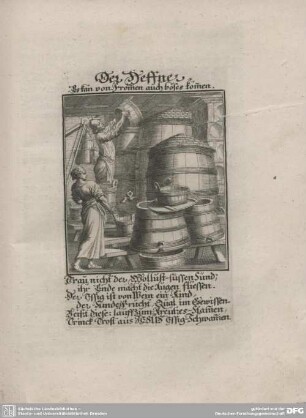 Der Heffner
Es kan von Fromen auch böses komen.
Trau nicht der Wollust süssen Sünd;
ihr Ende macht die Augen fliessen.
Der Essig ist von Wein ein Kind,
der Sündeßfrucht, Qual im Gewissen.
diese: lauff zum Creutzes-Stamen,
Trinck Trost aus JESUS Essig-Schwamen